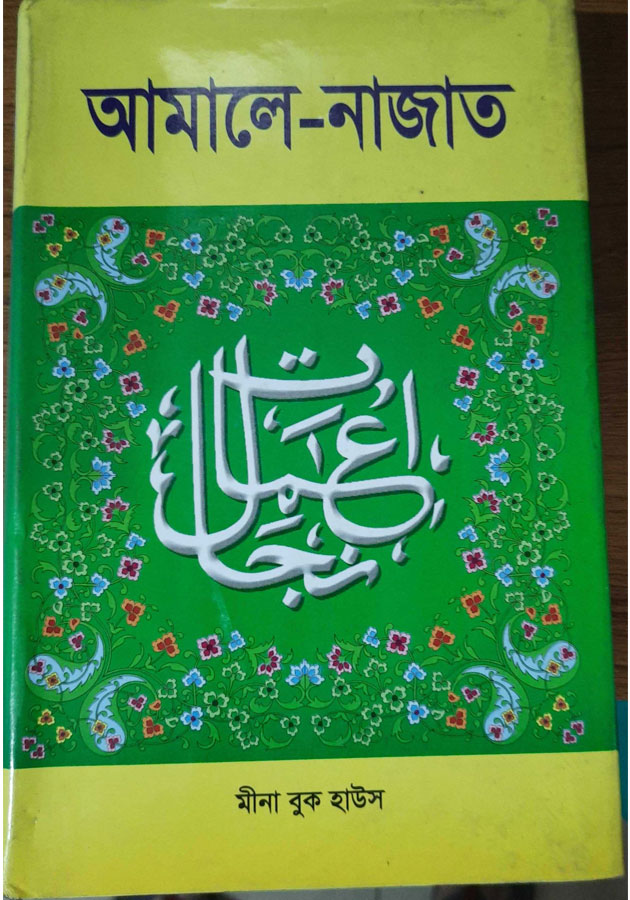 আমালে-নাজাত
اعمال نجات
মীনা বুক হাউস